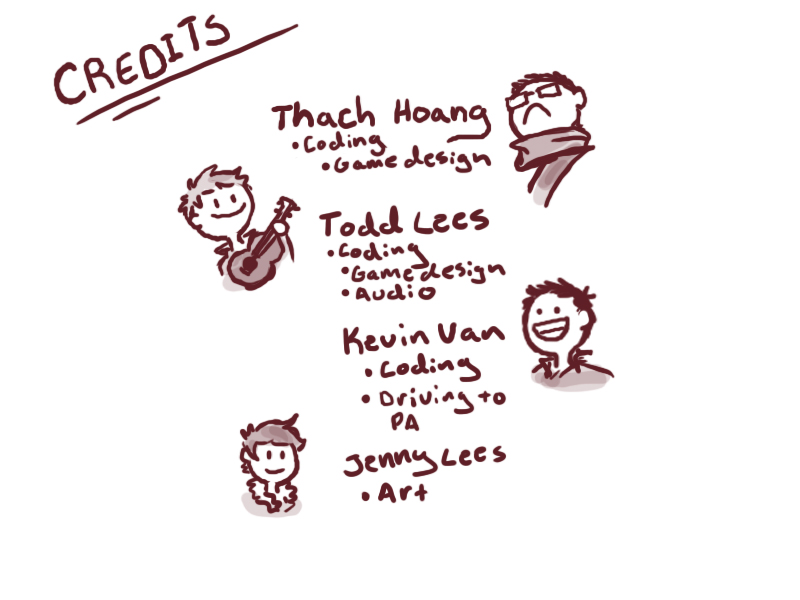 CREDITS
Thach Hoang
• Coding
• Game design
Todd Lees
• Coding
• Game design
• Audio
Kevin Van
• Coding
• Driving to
PA
Jenny Lees
• Art